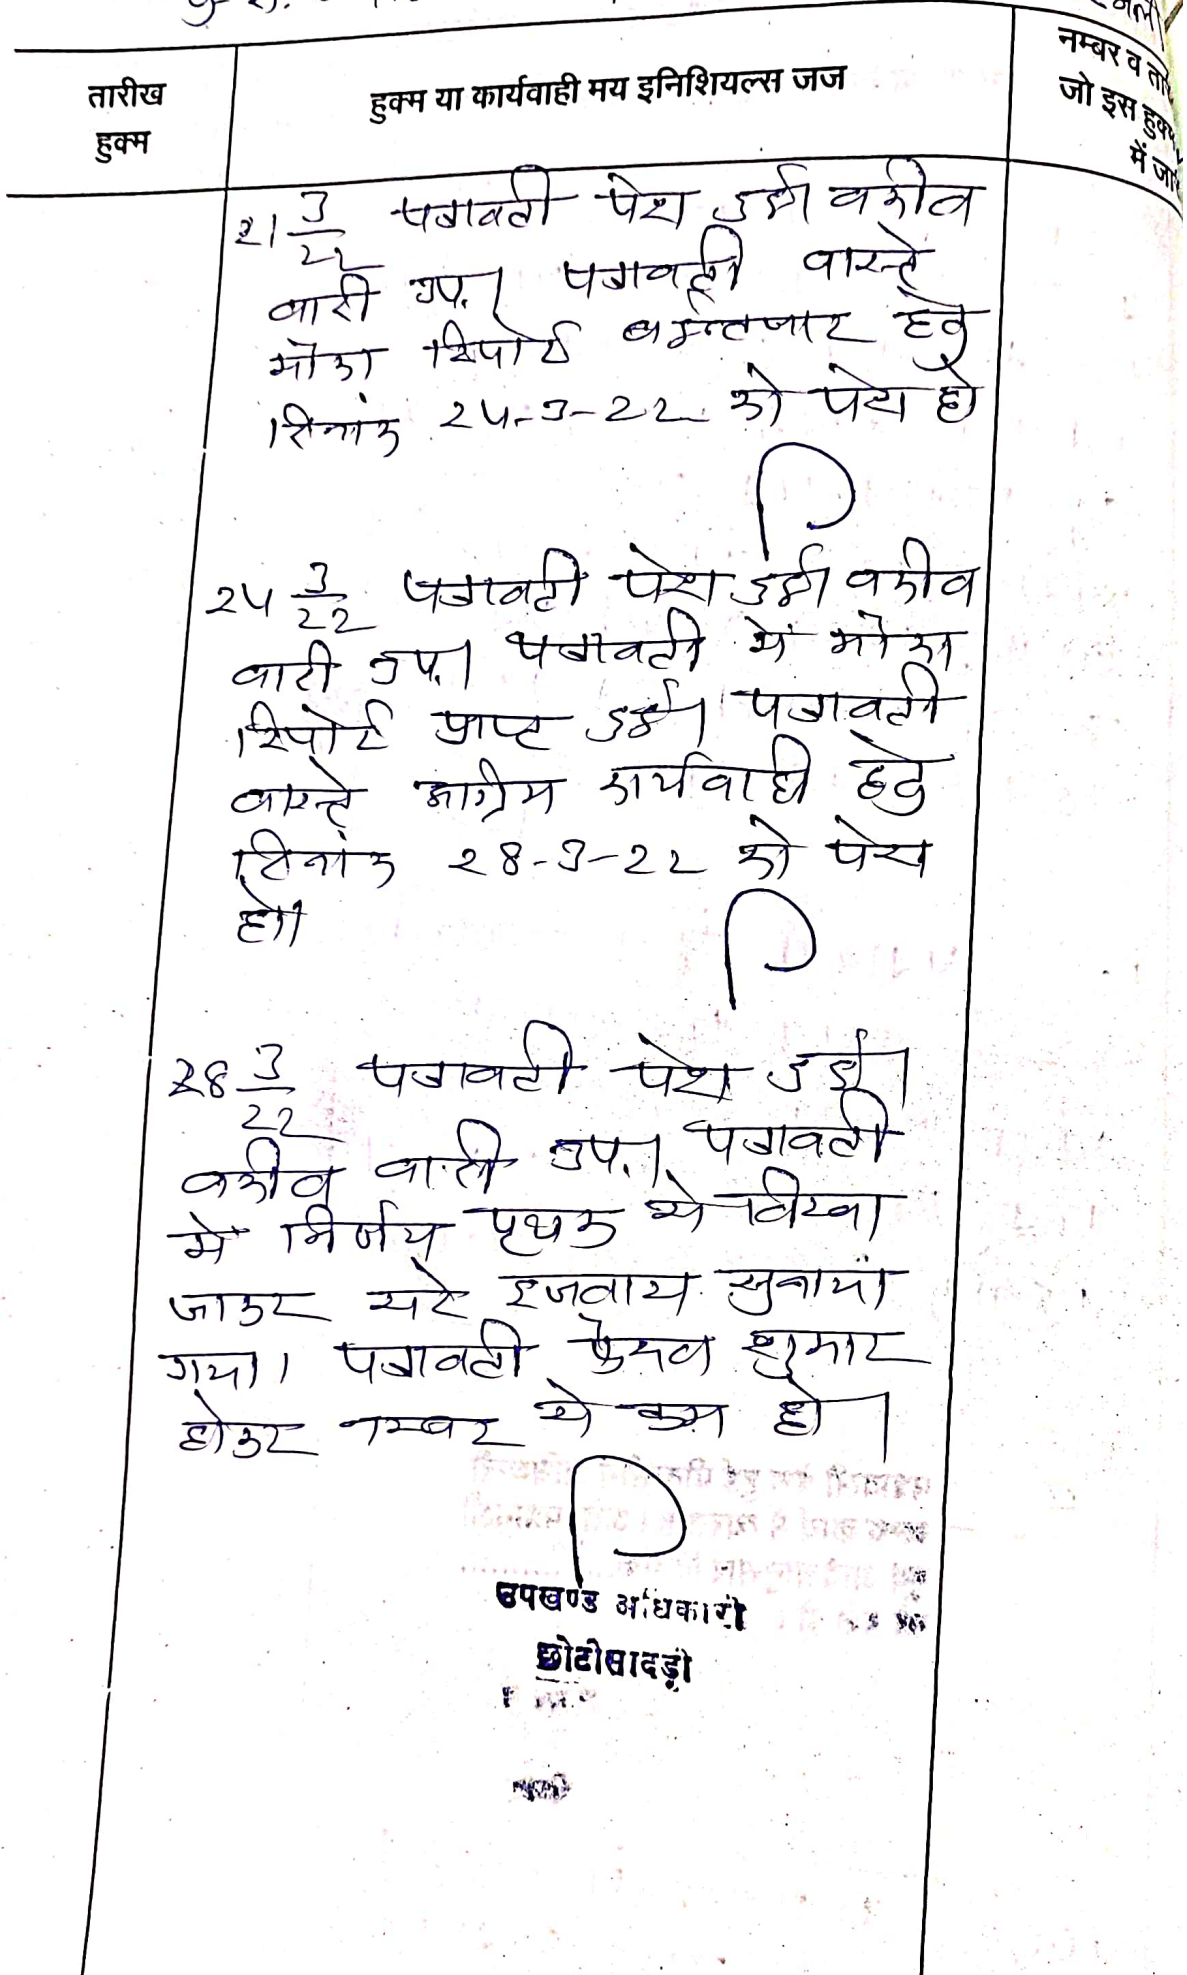 तारीख
हुक्म
हुक्म या कार्यवाही मय इनिशियल्स जज
नम्बर व ता
जो इस हुक्म
में जा
21 3/22 पत्रावली पेश हुई। वकील
वादी उप.। पत्रावली वास्ते
मौका रिपोर्ट इन्तजार हेतु
दिनांक 24-3-22 को पेश हो
24 3/22 पत्रावली पेश हुई। वकील
वादी उप.। पत्रावली में मौका
रिपोर्ट प्राप्त हुई। पत्रावली
वास्ते अग्रिम कार्यवाही हेतु
दिनांक 28-3-22 को पेश
हो।
28 3/22 पत्रावली पेश हुई।
वकील वादी उप.। पत्रावली
में निर्णय पृथक से लिखा
जाकर सरे इजलास सुनाया
गया। पत्रावली फैसल शुमार
होकर नम्बर से कम हो।
उपखण्ड अधिकारी
छोटीसादड़ी